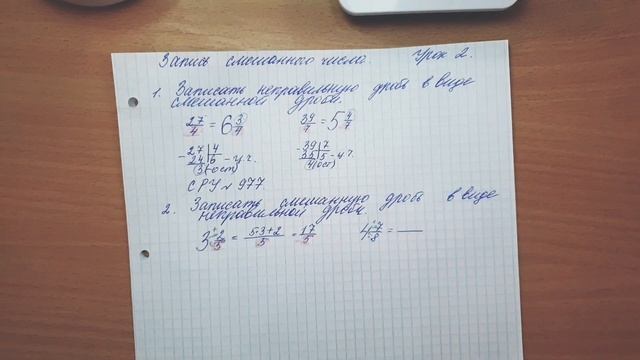 Запись смешанного числа. Урок 2.
1. Записать неправильную дробь в виде
смешанной дроби.
27/4 = 6 3/4 39/7 = 5 4/7
- 27 | 4 - 39 | 7
24 | 6 - ц.ч. 35 | 5 - ц.ч.
3 (ост) 4 (ост)
СРУ № 977
2. Записать смешанную дробь в виде
неправильной дроби.
3 2/5 = 5·3+2/5 = 17/5 4 7/8 = —